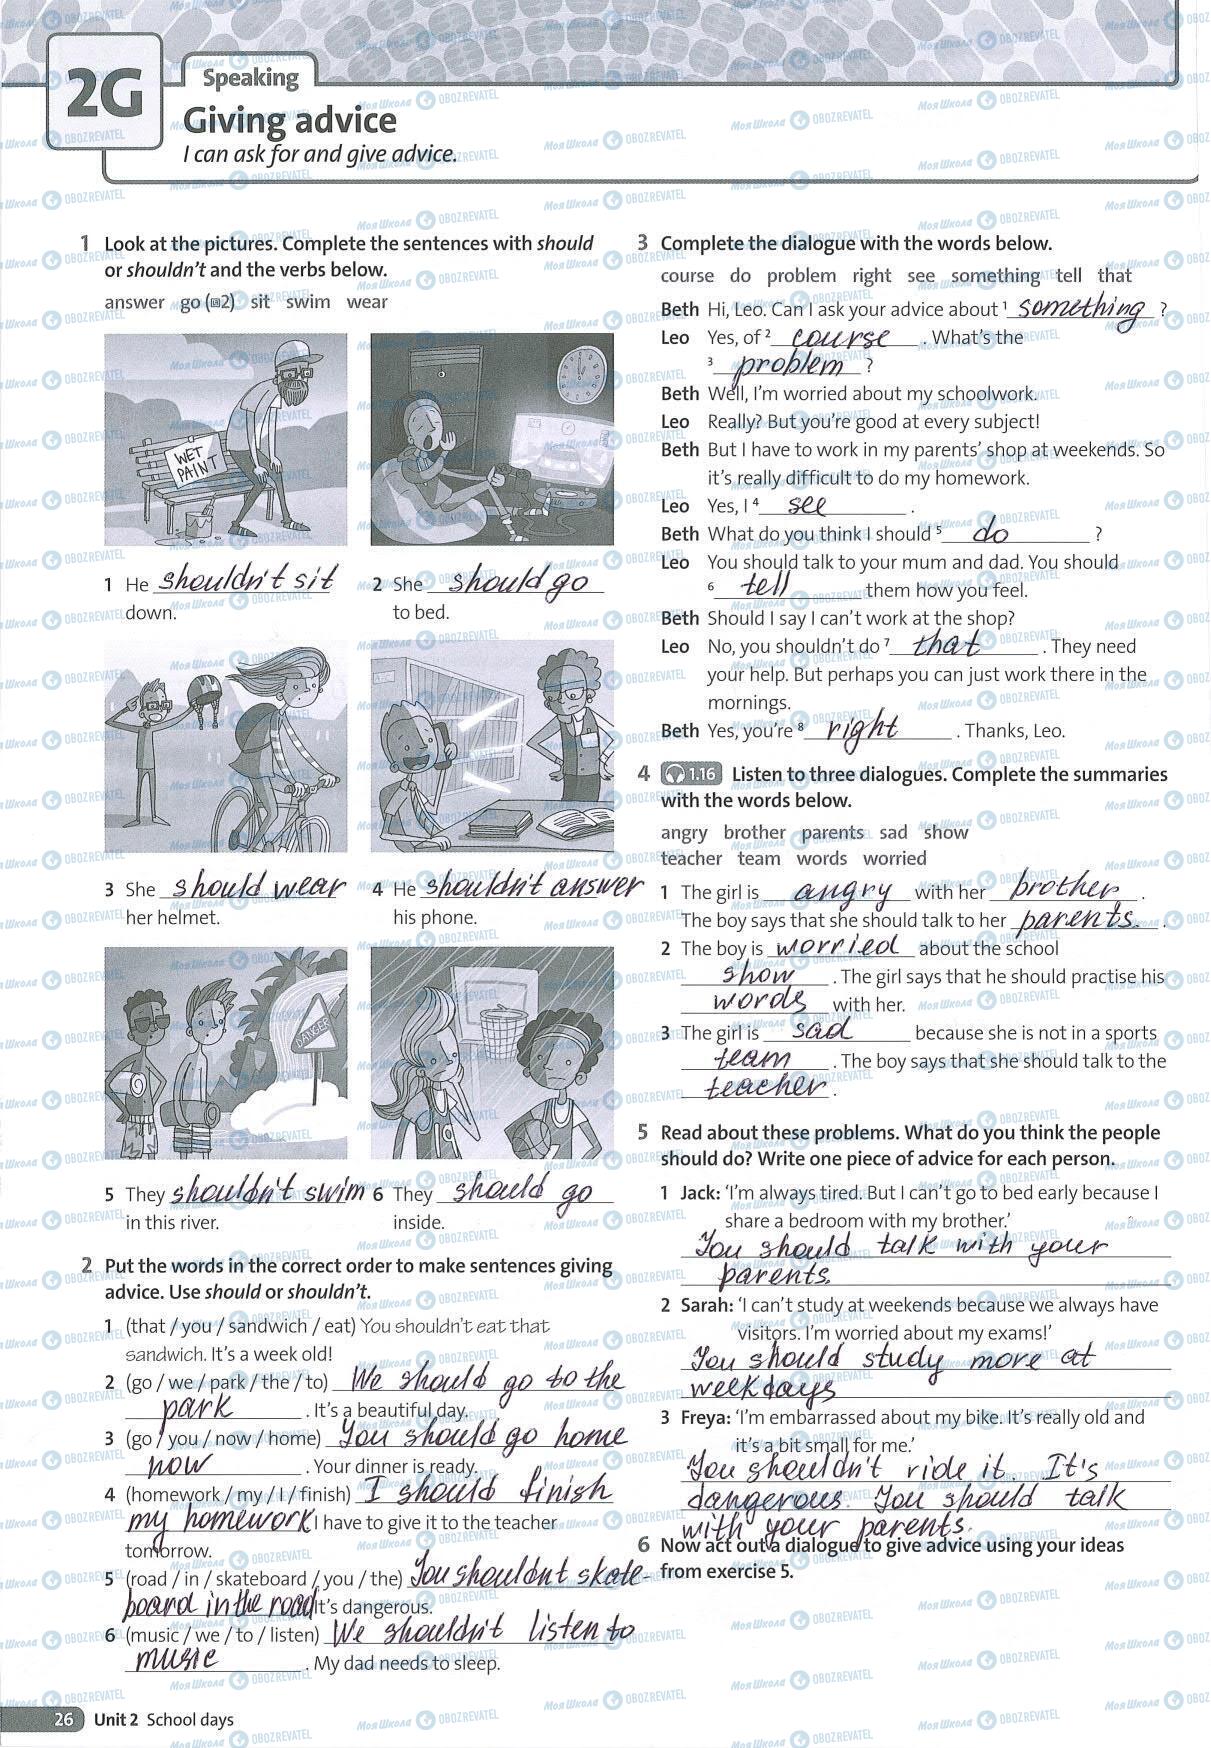 2G
Speaking
Giving advice
I can ask for and give advice.
1 Look at the pictures. Complete the sentences with should
or shouldn't and the verbs below.
answer go (x2) sit swim wear
WET
PAINT
1 He shouldn't sit
down.
2 She should go
to bed.
3 She should wear
her helmet.
4 He shouldn't answer
his phone.
DANGER
5 They shouldn't swim
in this river.
6 They should go
inside.
2 Put the words in the correct order to make sentences giving
advice. Use should or shouldn't.
1 (that / you / sandwich / eat) You shouldn't eat that
sandwich. It's a week old!
2 (go / we / park / the / to) We should go to the
park. It's a beautiful day.
3 (go / you / now / home) You should go home
now. Your dinner is ready.
4 (homework / my / I / finish) I should finish
my homework I have to give it to the teacher
tomorrow.
5 (road / in / skateboard / you / the) You shouldnt skate-
board in the road It's dangerous.
6 (music / we / to / listen) We shouldn't listen to
music. My dad needs to sleep.
3 Complete the dialogue with the words below.
course do problem right see something tell that
Beth Hi, Leo. Can I ask your advice about 1 something ?
Leo Yes, of 2 course . What's the
3 problem ?
Beth Well, I'm worried about my schoolwork.
Leo Really? But you're good at every subject!
Beth But I have to work in my parents' shop at weekends. So
it's really difficult to do my homework.
Leo Yes, I 4 see .
Beth What do you think I should 5 do ?
Leo You should talk to your mum and dad. You should
6 tell them how you feel.
Beth Should I say I can't work at the shop?
Leo No, you shouldn't do 7 that . They need
your help. But perhaps you can just work there in the
mornings.
Beth Yes, you're 8 right . Thanks, Leo.
4 1.16 Listen to three dialogues. Complete the summaries
with the words below.
angry brother parents sad show
teacher team words worried
1 The girl is angry with her brother .
The boy says that she should talk to her parents. .
2 The boy is worried about the school
show . The girl says that he should practise his
words with her.
3 The girl is sad because she is not in a sports
team . The boy says that she should talk to the
teacher .
5 Read about these problems. What do you think the people
should do? Write one piece of advice for each person.
1 Jack: 'I'm always tired. But I can't go to bed early because I
share a bedroom with my brother.'
You should talk with your
parents.
2 Sarah: 'I can't study at weekends because we always have
visitors. I'm worried about my exams!'
You should study more at
weekdays
3 Freya: 'I'm embarrassed about my bike. It's really old and
it's a bit small for me.'
You shouldn't ride it. It's
dangerous. You should talk
with your parents.
6 Now act out a dialogue to give advice using your ideas
from exercise 5.
26 Unit 2 School days
Моя Школа OBOZREVATEL